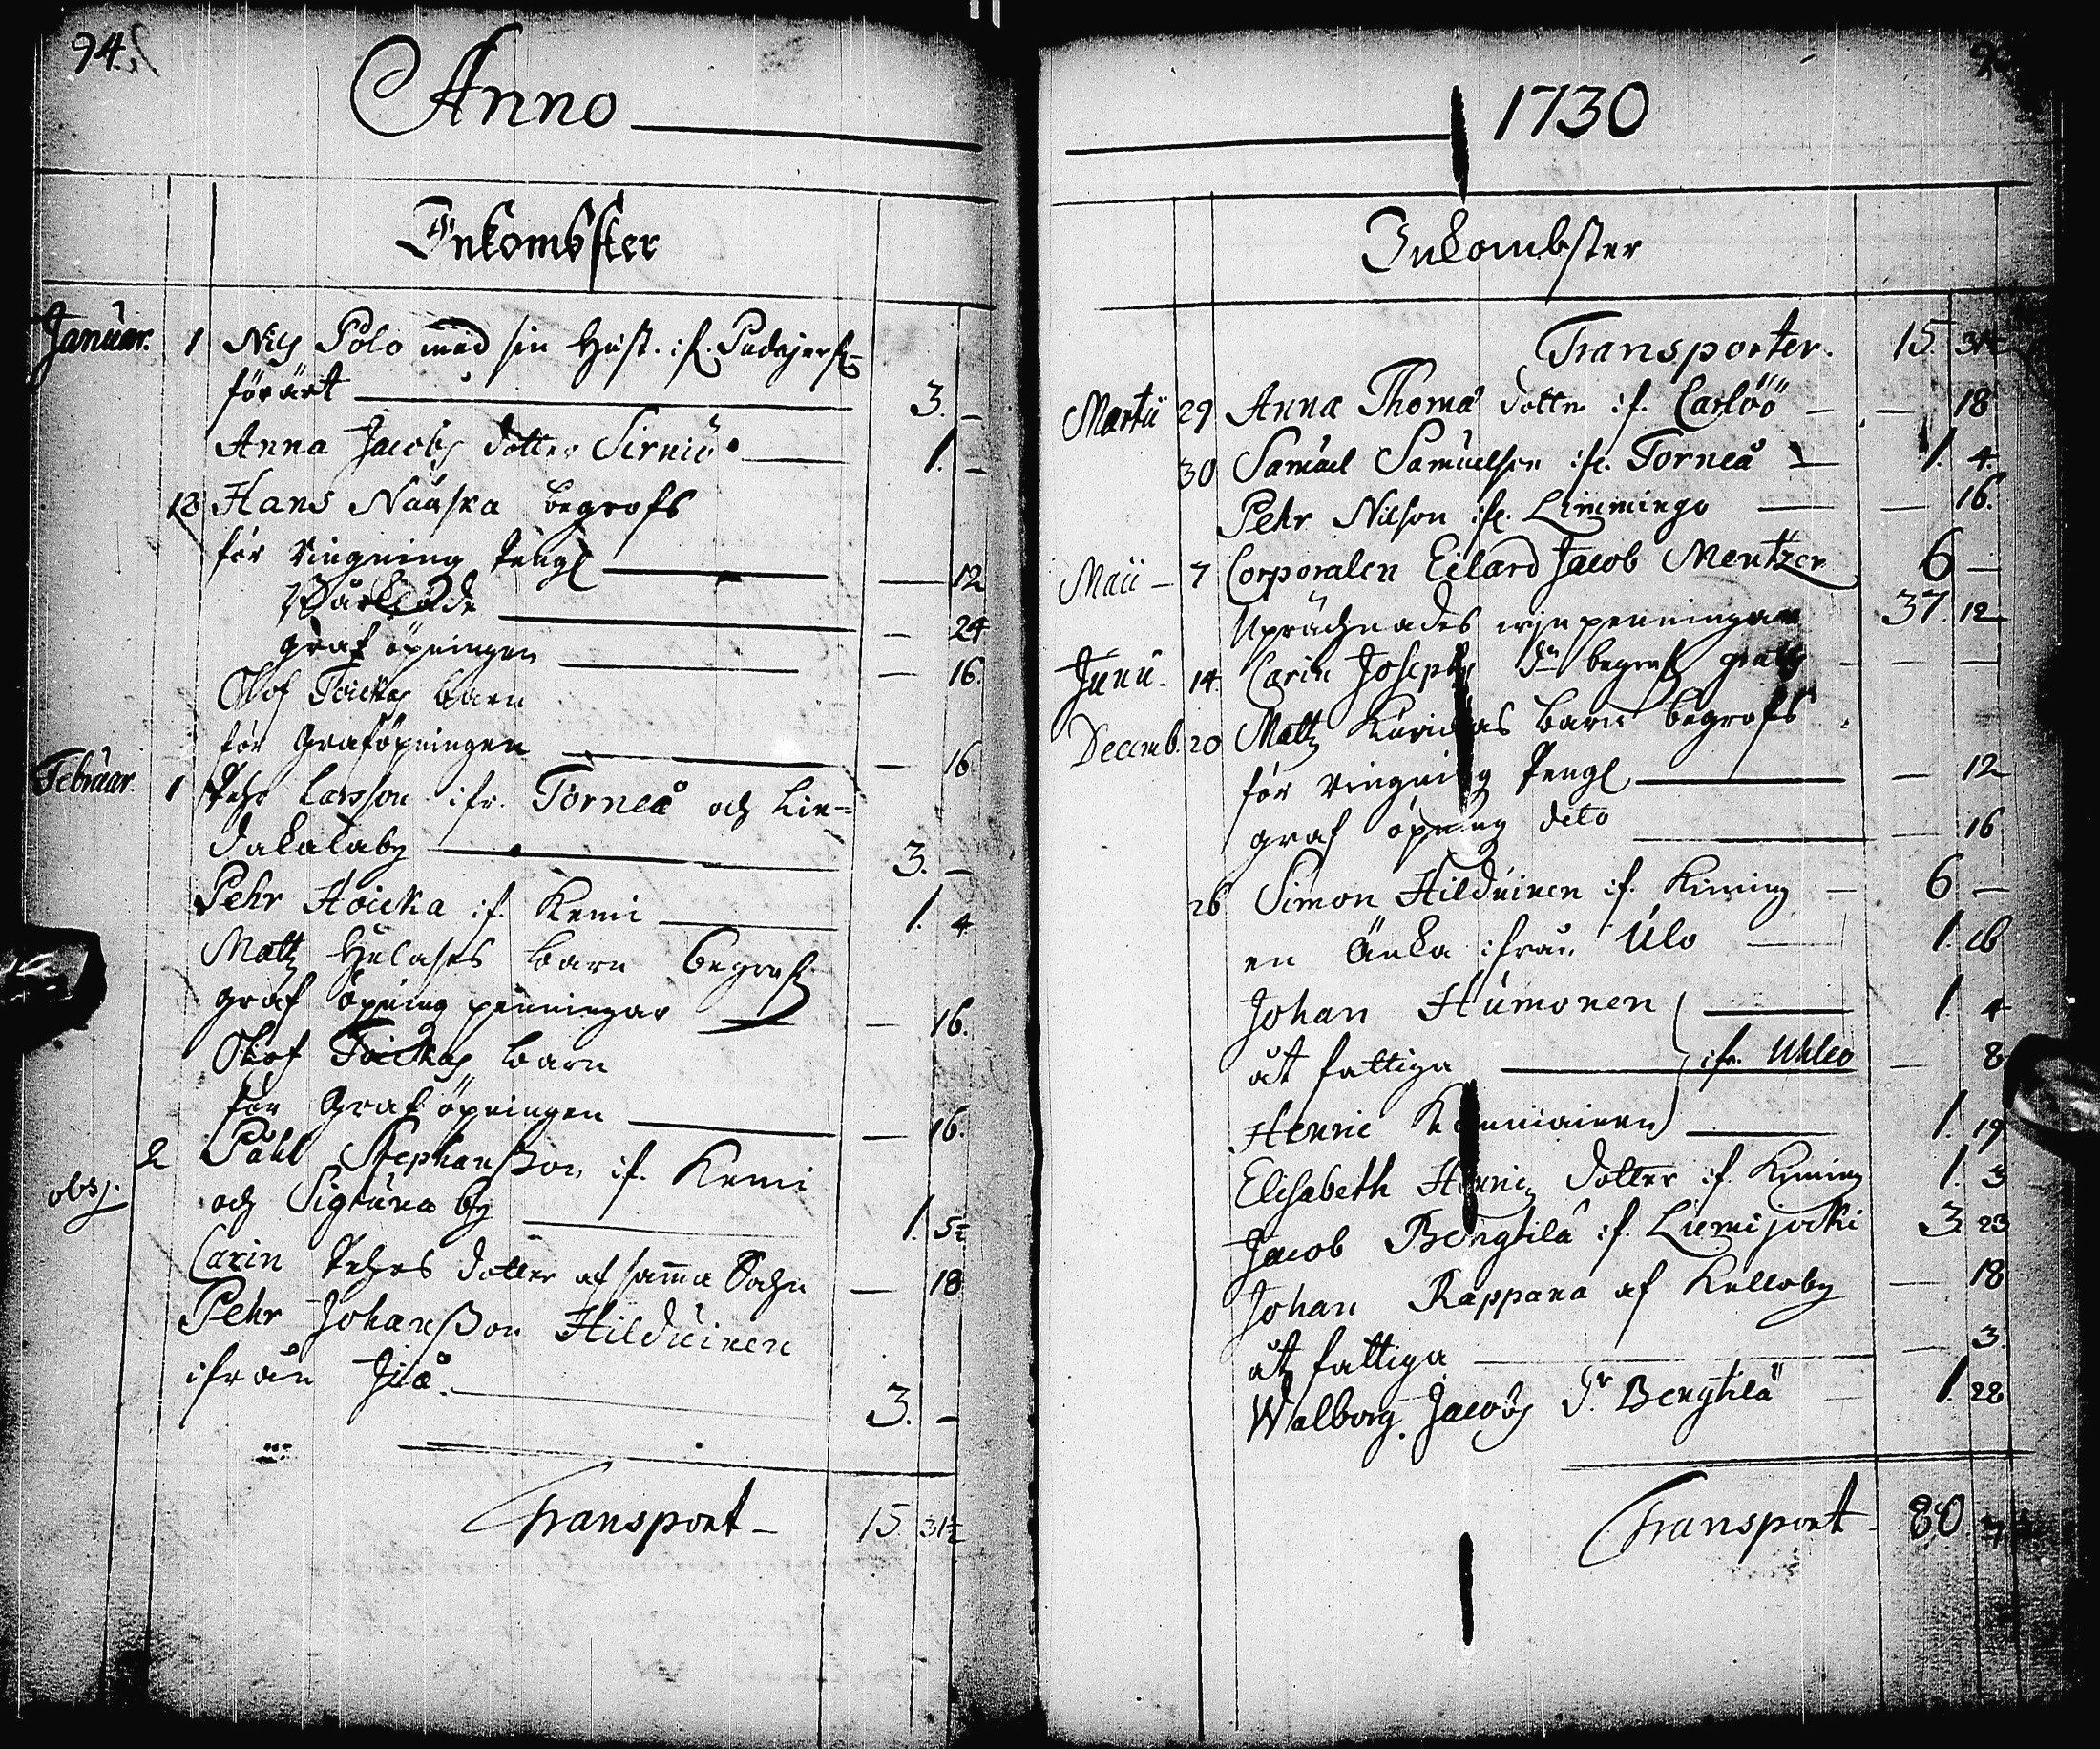 94.
Anno
Inkombster
Januar. 1 Nils Polo med sin Hust. if. Pudasjerf
förärt 3. —
Anna Jacobs dotter Sirniö 1. —
13 Hans Nääska begrofs
för ringning Pengl — 12
Bårkläde — 24
graf öpningen — 16.
Olof Toickas barn
för Graföpningen — 16
Februar. 1 Pehr Larsson ifr. Torneå och Lin=
dakalaby 3. —
Pehr Höicka if. Kemi 1. 4
Matz Hulases barn begrafs
graf öpning penningar — 16.
Olof Toickas barn
för Graföpningen — 16.
obs. 2 Påhl Stephanßon if. Kemi
och Sigtuna by 1. 5½
Carin Pehrs dotter af samma Sochn — 18
Pehr Johanßon Hilduinen
ifrån Jiå. 3. —
Transport — 15. 31½
1730
Inkombster
Transporter. 15. 31½
Martii 29 Anna Thoma dotter if. Carlöö — — 18
30 Samuel Samuelson ifr. Torneå — 1. 4.
Pehr Nilson ifr. Limmingo — — 16.
Maii — 7 Corporalen Eilard Jacob Mentzer 6 —
Upräcknades wijnpenningar 37. 12
Junii. 14. Carin Josephs dr begrafs gratis — — —
Decemb. 20 Matz barn begrofs
för ringning Pengl — 12
graf öpning dito — 16
26 Simon Hilduinen if. Kiming — 6 —
en Änka ifrån Ulo 1. 16
Johan Humonen 1. 4
åt fattiga ifr. Uhleo — 8
Henric 1. 19
Elisabeth Henriz dotter if. Kiming 1. 3
Jacob Bengtilä if. Lumijocki 3. 23
Johan Rappana af Kelloby — 18
åt fattiga — 3.
Walborg Jacobs dr. Bengtilä — 1. 28
Transport — 80.